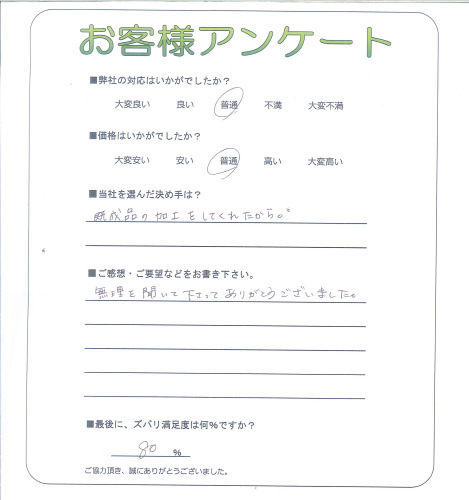 お客様アンケート
■弊社の対応はいかがでしたか？
大変良い 良い 普通 不満 大変不満
■価格はいかがでしたか？
大変安い 安い 普通 高い 大変高い
■当社を選んだ決め手は？
既成品の加工をしてくれたから。
■ご感想・ご要望などをお書き下さい。
無理を聞いて下さってありがとうございました。
■最後に、ズバリ満足度は何％ですか？
80 %
ご協力頂き、誠にありがとうございました。